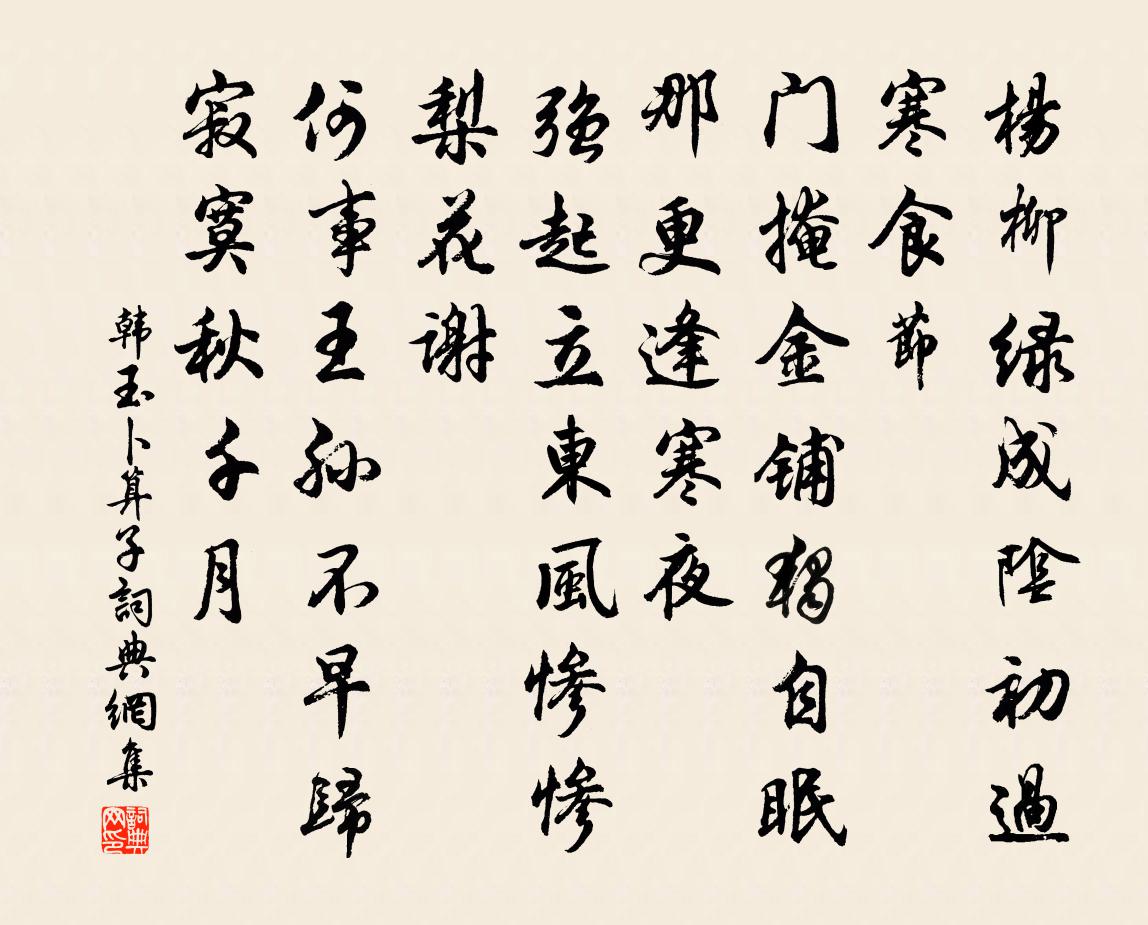 楊柳綠成陰初過
寒食節
門掩金鋪獨自眠
那更逢寒夜
強起立東風慘慘
梨花謝
何事王孫不早歸
寂寞秋千月
韓玉卜算子詞典網集
詞典网印